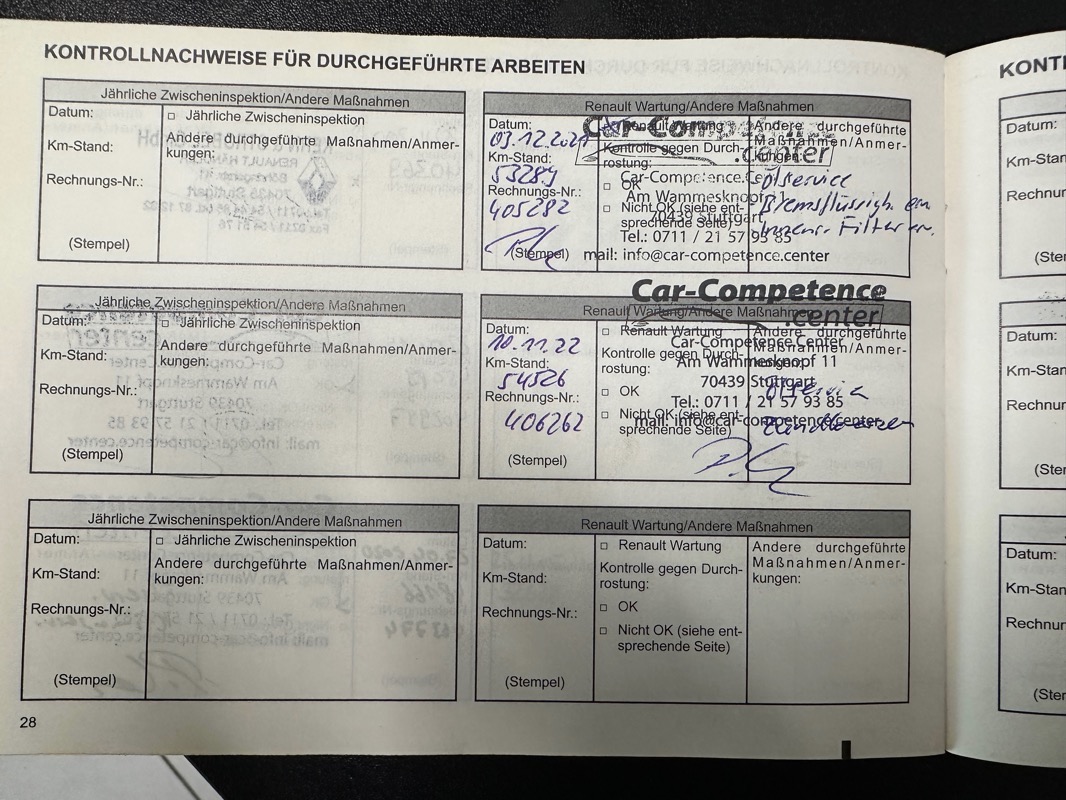 KONTROLLNACHWEISE FÜR DURCHGEFÜHRTE ARBEITEN
Jährliche Zwischeninspektion/Andere Maßnahmen
Datum:
□ Jährliche Zwischeninspektion
Andere durchgeführte Maßnahmen/Anmer-
kungen:
Km-Stand:
Rechnungs-Nr.:
(Stempel)
Renault Wartung/Andere Maßnahmen
Datum:
03.12.2021
Km-Stand:
53289
Rechnungs-Nr.:
405282
(Stempel)
Renault Wartung
Kontrolle gegen Durch-
rostung:
□ OK
□ Nicht OK (siehe ent-
sprechende Seite)
Andere durchgeführte
Maßnahmen/Anmer-
kungen:
Ölservice
Bremsflüssigk.
Innenr. Filter
.center
Car-Competence.Center
Am Wammesknopf 11
70439 Stuttgart
Tel.: 0711 / 21 57 93 85
mail: info@car-competence.center
Jährliche Zwischeninspektion/Andere Maßnahmen
Datum:
□ Jährliche Zwischeninspektion
Andere durchgeführte Maßnahmen/Anmer-
kungen:
Km-Stand:
Rechnungs-Nr.:
(Stempel)
Car-Competence
.center
Renault Wartung/Andere Maßnahmen
Datum:
10.11.22
Km-Stand:
54526
Rechnungs-Nr.:
406262
(Stempel)
□ Renault Wartung
Kontrolle gegen Durch-
rostung:
□ OK
□ Nicht OK (siehe ent-
sprechende Seite)
Andere durchgeführte
Maßnahmen/Anmer-
kungen:
Ölservice
Zündkerzen
Car-Competence.Center
Am Wammesknopf 11
70439 Stuttgart
Tel.: 0711 / 21 57 93 85
mail: info@car-competence.center
Jährliche Zwischeninspektion/Andere Maßnahmen
Datum:
□ Jährliche Zwischeninspektion
Andere durchgeführte Maßnahmen/Anmer-
kungen:
Km-Stand:
Rechnungs-Nr.:
(Stempel)
Renault Wartung/Andere Maßnahmen
Datum:
Km-Stand:
Rechnungs-Nr.:
(Stempel)
□ Renault Wartung
Kontrolle gegen Durch-
rostung:
□ OK
□ Nicht OK (siehe ent-
sprechende Seite)
Andere durchgeführte
Maßnahmen/Anmer-
kungen:
28
Datum:
Datum:
Datum: